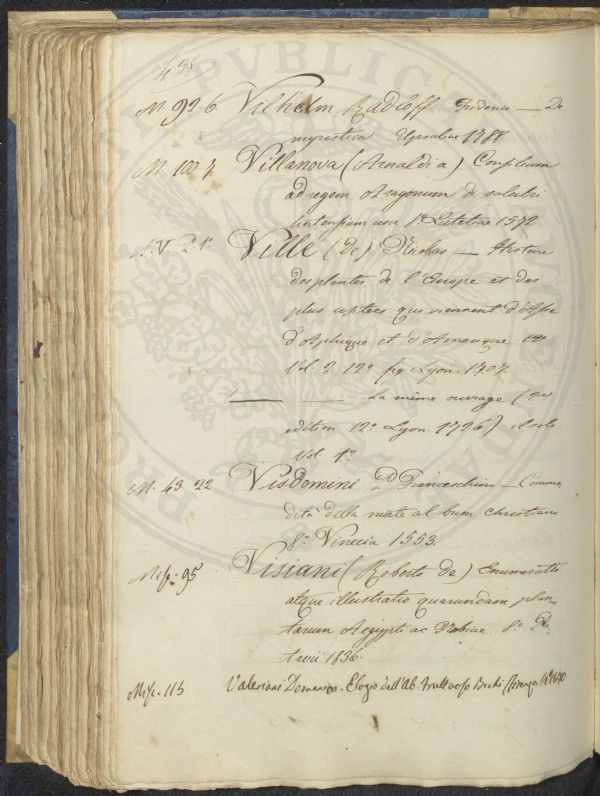 438
M 92 6 Vilhelm Radloff Frideric — De
myristica Upsaliae 1788
M 100 7 Villanova (Arnaldi a) Consilium
ad regem Aragonum de salubri
hortensium usu 8º Lutetiae 1572
N. V. 2. 1º Ville (de) Nicolas — Histoire
des plantes de l'Europe et des
plus usitees qui viennent d'Asie
d'Aphrique et d'Amerique
Vol. 2 12º fig Lyon. 1707.
— — La même ouvrage
edition 12º Lyon 1726)
Vol. 1º
M. 43 22 Visdomini Franceschino — Comme
dità della morte al buon christiano
8º Vinecia 1553.
Misc. 95 Visiani (Roberto de) Enumeratio
atque illustratio quarundam plan
tarum Aegypti ac Nubiae. 8º Pa
tavii 1836.
Misc. 115 Valeriani Domenico. Elogio dell'Ab. Fruttuoso Becchi Firenze